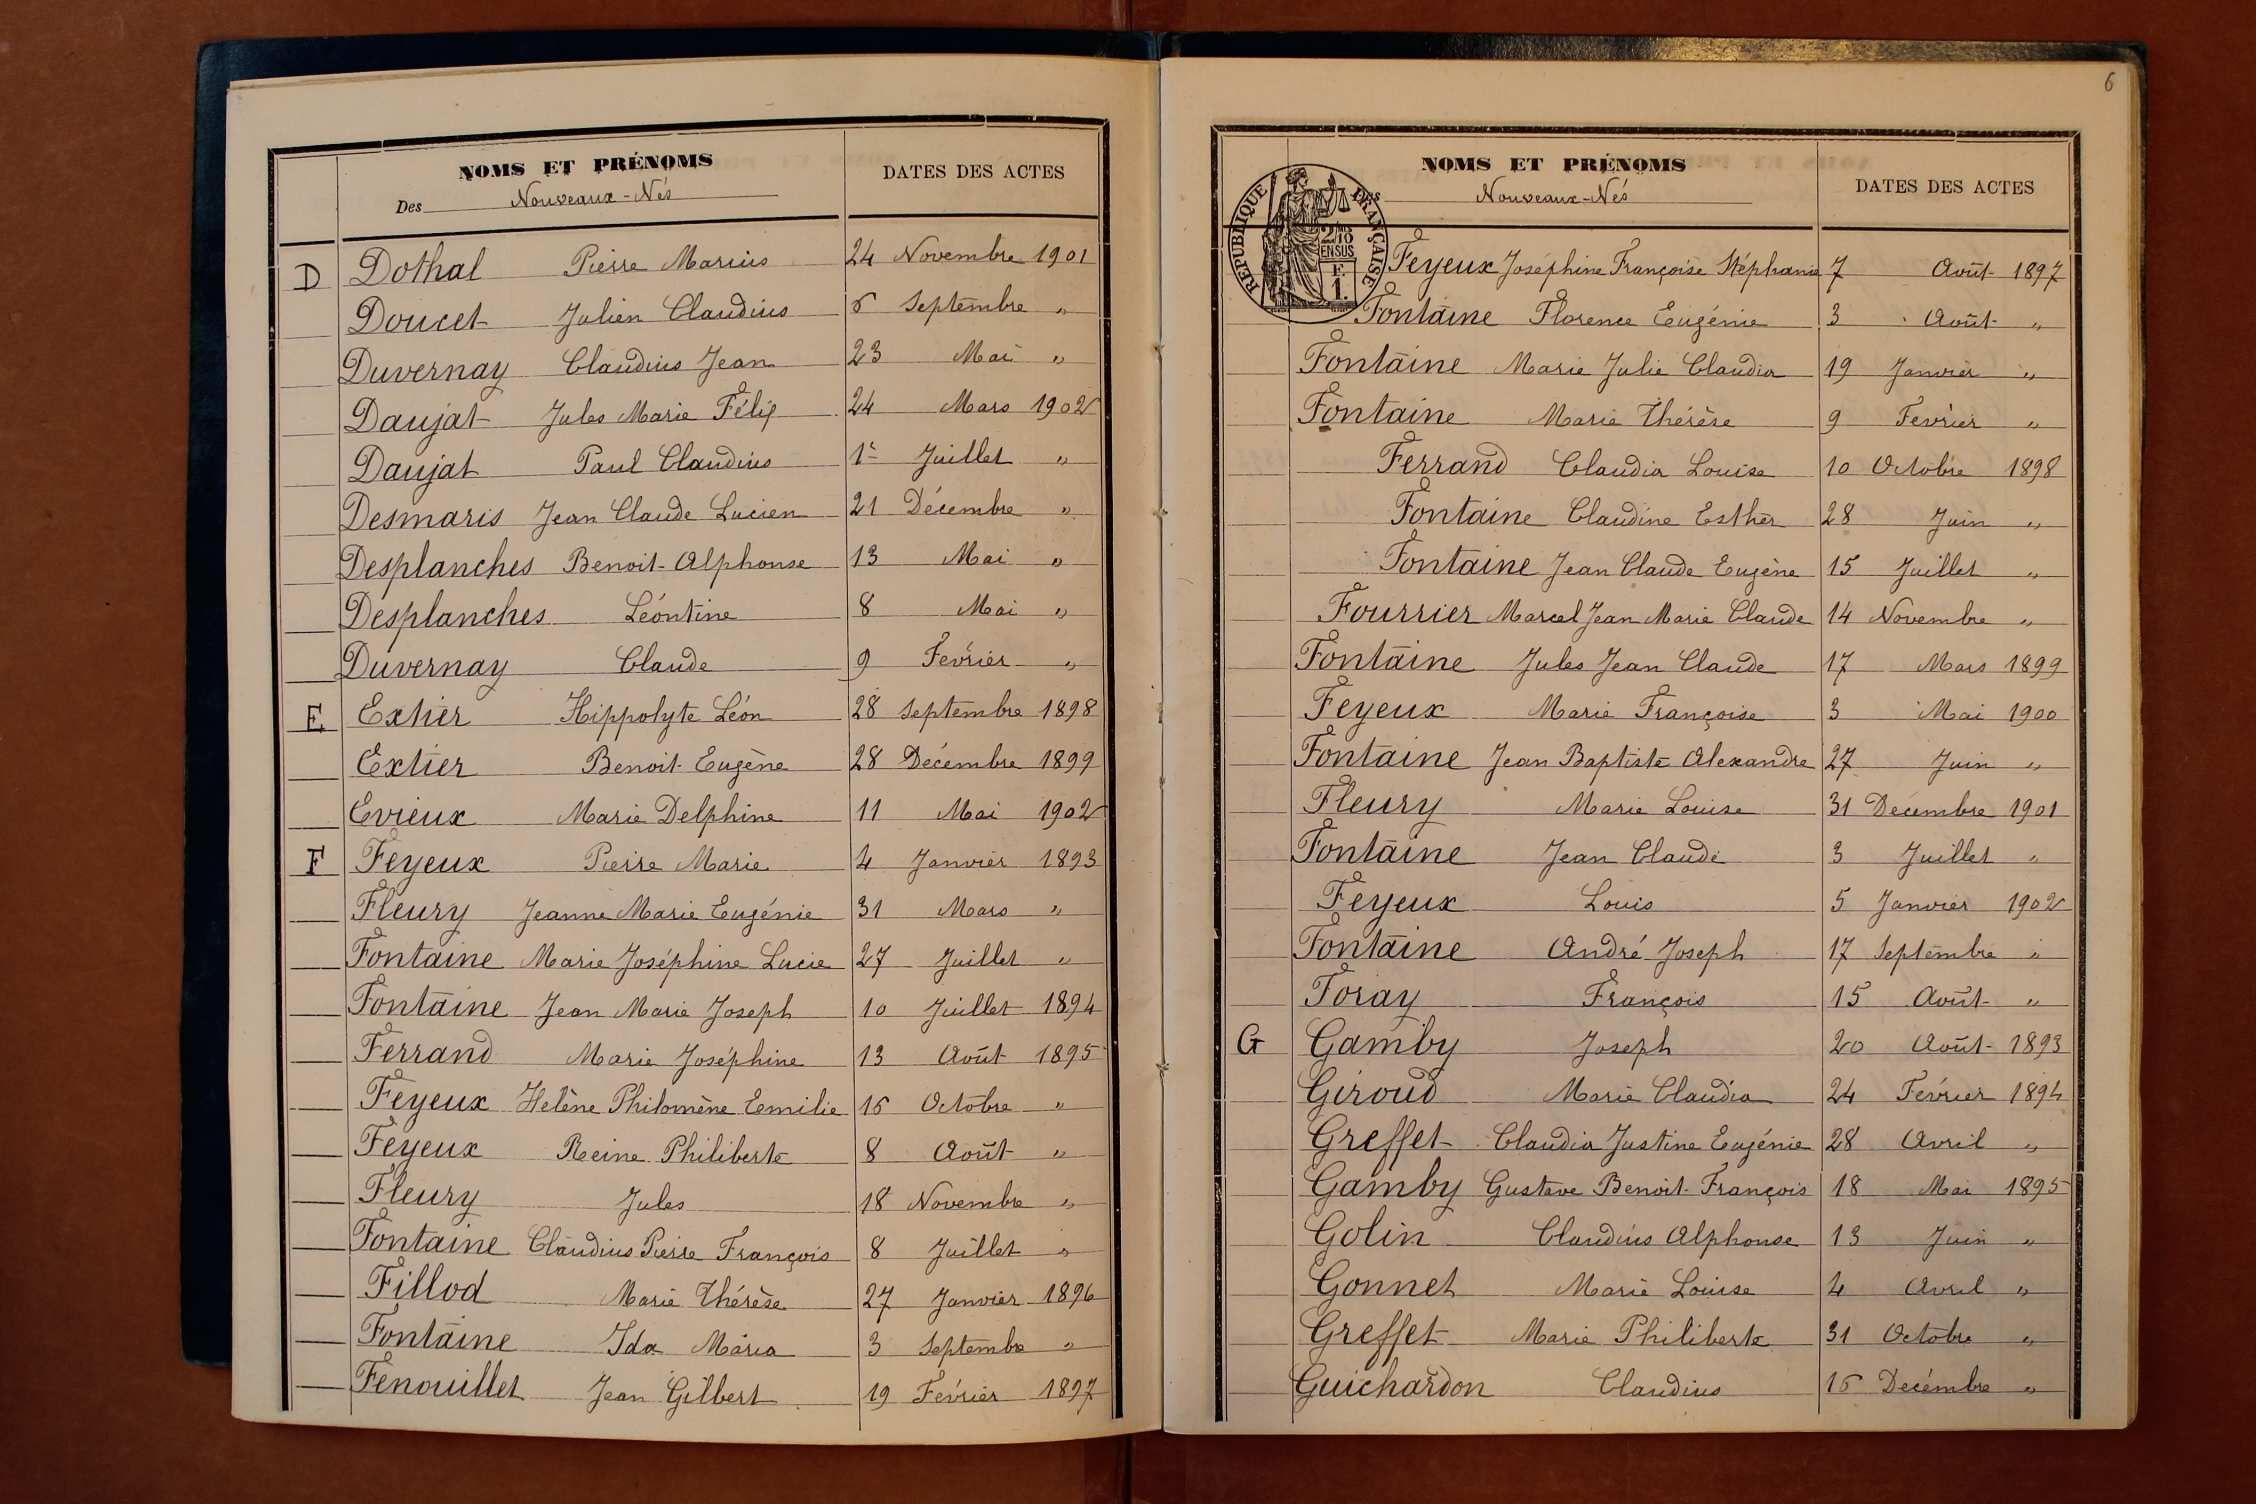 NOMS ET PRÉNOMS
DATES DES ACTES
Des Nouveaux-Nés
D Dothal Pierre Marius 24 Novembre 1901
Doucet Julien Claudius 6 Septembre "
Duvernay Claudius Jean 23 Mai "
Daujat Jules Marie Félix 24 Mars 1902
Daujat Paul Claudius 1er Juillet "
Desmaris Jean Claude Lucien 21 Décembre "
Desplanches Benoit Alphonse 13 Mai "
Desplanches Léontine 8 Mai "
Duvernay Claude 9 Février "
E Extier Hippolyte Léon 28 Septembre 1898
Extier Benoit Eugène 28 Décembre 1899
Evieux Marie Delphine 11 Mai 1902
F Feyeux Pierre Marie 4 Janvier 1893
Fleury Jeanne Marie Eugénie 31 Mars "
Fontaine Marie Joséphine Lucie 27 Juillet "
Fontaine Jean Marie Joseph 10 Juillet 1894
Ferrand Marie Joséphine 13 Août 1895
Feyeux Helène Philomène Eemilie 16 Octobre "
Feyeux Reine Philiberte 8 Août "
Fleury Jules 18 Novembre "
Fontaine Claudius Pierre François 8 Juillet "
Fillod Marie Thérèse 27 Janvier 1896
Fontaine Ida Maria 3 Septembre "
Fenouillet Jean Gilbert 19 Février 1897
6
NOMS ET PRÉNOMS
DATES DES ACTES
Des Nouveaux-Nés
RÉPUBLIQUE FRANÇAISE
2/10 EN SUS
F. 1.
Feyeux Joséphine Françoise Stéphanie 7 Août 1897
Fontaine Florence Eugénie 3 Août "
Fontaine Marie Julie Claudia 19 Janvier "
Fontaine Marie Thérèse 9 Février "
Ferrand Claudia Louise 10 Octobre 1898
Fontaine Claudine Esther 28 Juin "
Fontaine Jean Claude Eugène 15 Juillet "
Fourrier Marcel Jean Marie Claude 14 Novembre "
Fontaine Jules Jean Claude 17 Mars 1899
Feyeux Marie Françoise 3 Mai 1900
Fontaine Jean Baptiste Alexandre 27 Juin "
Fleury Marie Louise 31 Décembre 1901
Fontaine Jean Claude 3 Juillet "
Feyeux Louis 5 Janvier 1902
Fontaine André Joseph 17 Septembre "
Foray François 15 Août "
G Gamby Joseph 20 Août 1893
Giroud Marie Claudia 24 Février 1894
Greffet Claudia Justine Eugénie 28 Avril "
Gamby Gustave Benoit François 18 Mai 1895
Golin Claudius Alphonse 13 Juin "
Gonnet Marie Louise 4 Avril "
Greffet Marie Philiberte 31 Octobre "
Guichardon Claudius 16 Decémbre "